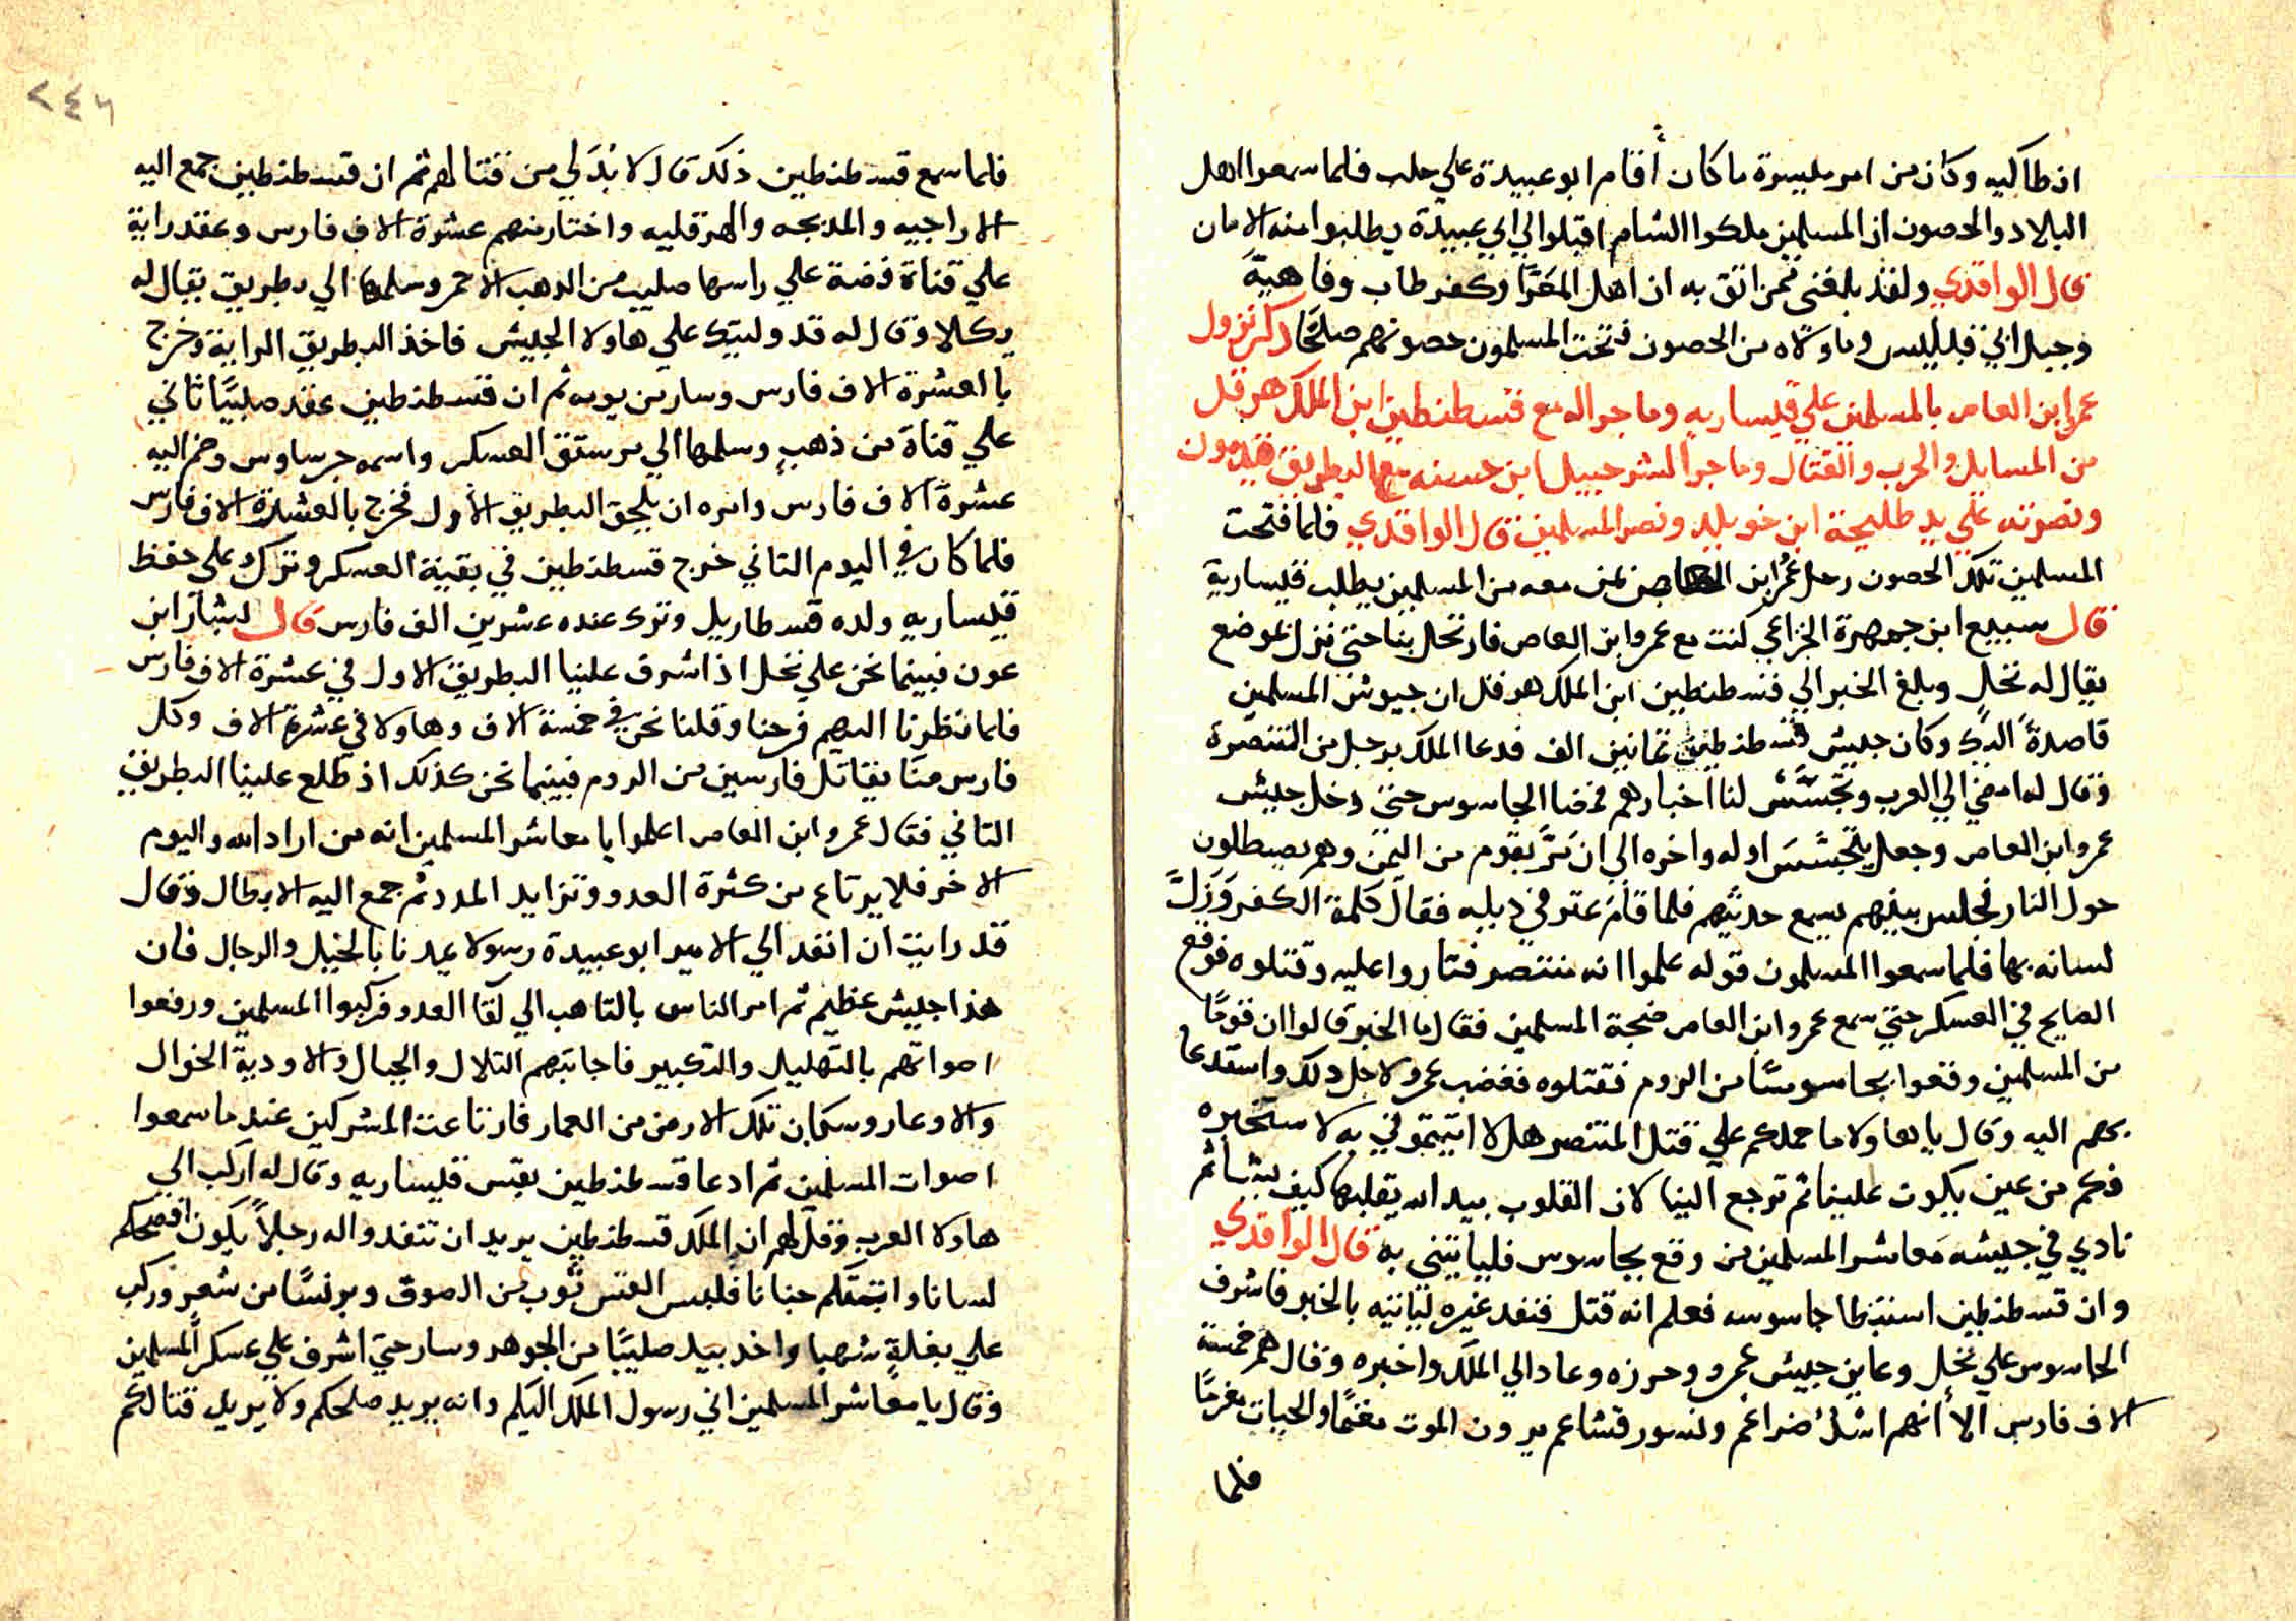 انطاكيه وكان من امر ميسرة ما كان أقام ابو عبيدة علي حلب فلما سمعوا اهل
البلاد والحصون ان المسلمين ملكوا الشام اقبلوا الي ابي عبيدة يطلبوا منه الامان
قال الواقدي ولقد بلغني ممن اثق به ان اهل المعرا وكفر طاب وفاهية
وجبل ابي قبيليس وما والاه من الحصون فتحت المسلمون حصونهم صلحا ذكر نزول
عمرا بن العاص بالمسلمين علي قيساريه وما جراله مع قسطنطين ابن الملك هرقل
من المسايل والحرب والقتال وما جرا لشرحبيل ابن حسنه مع البطريق قيدمون
ونصرته علي يد طليحة ابن خويلد ونصر المسلمين قال الواقدي فلما فتحت
المسلمين تلك الحصون رحل عمر ابن العاص بمن معه من المسلمين يطلب قيسارية
قال سبيع ابن جمهرة الخزاعي كنت مع عمرو ابن العاص فارتحل بنا حتي نزل بموضع
يقال له نخل وبلغ الخبر الي قسطنطين ابن الملك هرقل ان جيوش المسلمين
قاصدة اليك وكان جيش قسطنطين ثمانين الف فدعا الملك برجل من المتنصرة
وقال له امضي الي العرب وتجسس لنا اخبارهم فمضا الجاسوس حتي دخل جيش
عمرو ابن العاص وجعل يتجسس اوله واخره الي ان مر بقوم من اليمن وهم يصطلون
حول النار فجلس بينهم يسمع حديثهم فلما قام عتر في ذيله فقال كلمة الكفر وزل
لسانه بها فلما سمعوا المسلمون قوله علموا انه متنصر فتاروا عليه وقتلوه فوقع
الصايح في العسكر حتي سمع عمرو ابن العاص ضجة المسلمين فقال ما الخبر قالوا ان قوما
من المسلمين وقعوا بجاسوسا من الروم فقتلوه فغضب عمرو لاجل ذلك واستدعا
بهم اليه وقال يا هاولا ما حملكم علي قتل المتنصر هلا اتيتموني به لاستخبره
فكم من عين يكون علينا ثم ترجع الينا لان القلوب بيد الله يقلبها كيف يشا ثم
نادي في جيشه معاشر المسلمين من وقع بجاسوس فلياتيني به قال الواقدي
وان قسطنطين استبطا جاسوسه فعلم انه قتل فنفد غيره لياتيه بالخبر فاشرف
الجاسوس علي نخل وعاين جيش عمرو وحرزه وعاد الي الملك واخبره وقال هم خمسة
الاف فارس الا أنهم اسد ضراغم ونسور قشاعم يرون الموت مغنما والحيات مغرما
فلما
فلما سمع قسطنطين ذلك قال لا بد لي من قتالهم ثم ان قسطنطين جمع اليه
الاراجيه والمدبجه والهرقليه واختار منهم عشرة الاف فارس وعقد راية
علي قناة فضة علي راسها صليب من الذهب الاحمر وسلمها الي بطريق يقال له
بكلا وقال له قد وليتك علي هاولا الجيش فاخذ البطريق الراية وخرج
بالعشرة الاف فارس وسار من يومه ثم ان قسطنطين عقد صليبا ثاني
علي قناة من ذهب وسلمها الي مرستق العسكر واسمه جرساوس وضم اليه
عشرة الاف فارس وامره ان يلحق البطريق الأول فخرج بالعشرة الاف فارس
فلما كان في اليوم التاني خرج قسطنطين في بقية العسكر وترك علي حفظ
قيساريه ولده قسطاريل وترك عنده عشرين الف فارس قال بشار ابن
عون فبينما نحن علي نخل اذا شرف علنيا البطريق الاول في عشرة الاف فارس
فلما نظرنا اليهم فرحنا وقلنا نحن في خمسة الاف وهاولا في عشرة الاف وكل
فارس منا يقاتل فارسين من الروم فبينما نحن كذلك اذ طلع علينا البطريق
التاني فقال عمرو ابن العاص اعلموا يا معاشر المسلمين انه من اراد الله واليوم
الاخر فلا يرتاع من كثرة العدو وتزايد المدد ثم جمع اليه الابطال وقال
قد رايت ان انفد الي الامير ابو عبيدة رسولا يمدنا بالخيل والرجال فان
هذا جيش عظيم ثم امر الناس بالتاهب الي لقا العدو فركبوا المسلمين ورفعوا
اصواتهم بالتهليل والتكبير فاجابتهم التلال والجبال والاودية الخوال
والاوعار وسكان تلك الارض من العمار فارتاعت المشركين عند ما سمعوا
اصوات المسلمين ثم ادعا قسطنطين بقس قيساريه وقال له اركب الي
هاولا العرب وقل لهم ان الملك قسطنطين يريد ان تنفدوا اله رجلا يكون افصحكم
لسانا وا جنانا فلبس القس ثوب من الصوف وبرنسا من شعر وركب
علي بغلة شهبا واخد بيده صليبا من الجوهر وسار حتي اشرف علي عسكر المسلمين
وقال يا معاشر المسلمين اني رسول الملك اليكم وانه يريد صلحكم ولا يريد قتالكم
٢٤٦